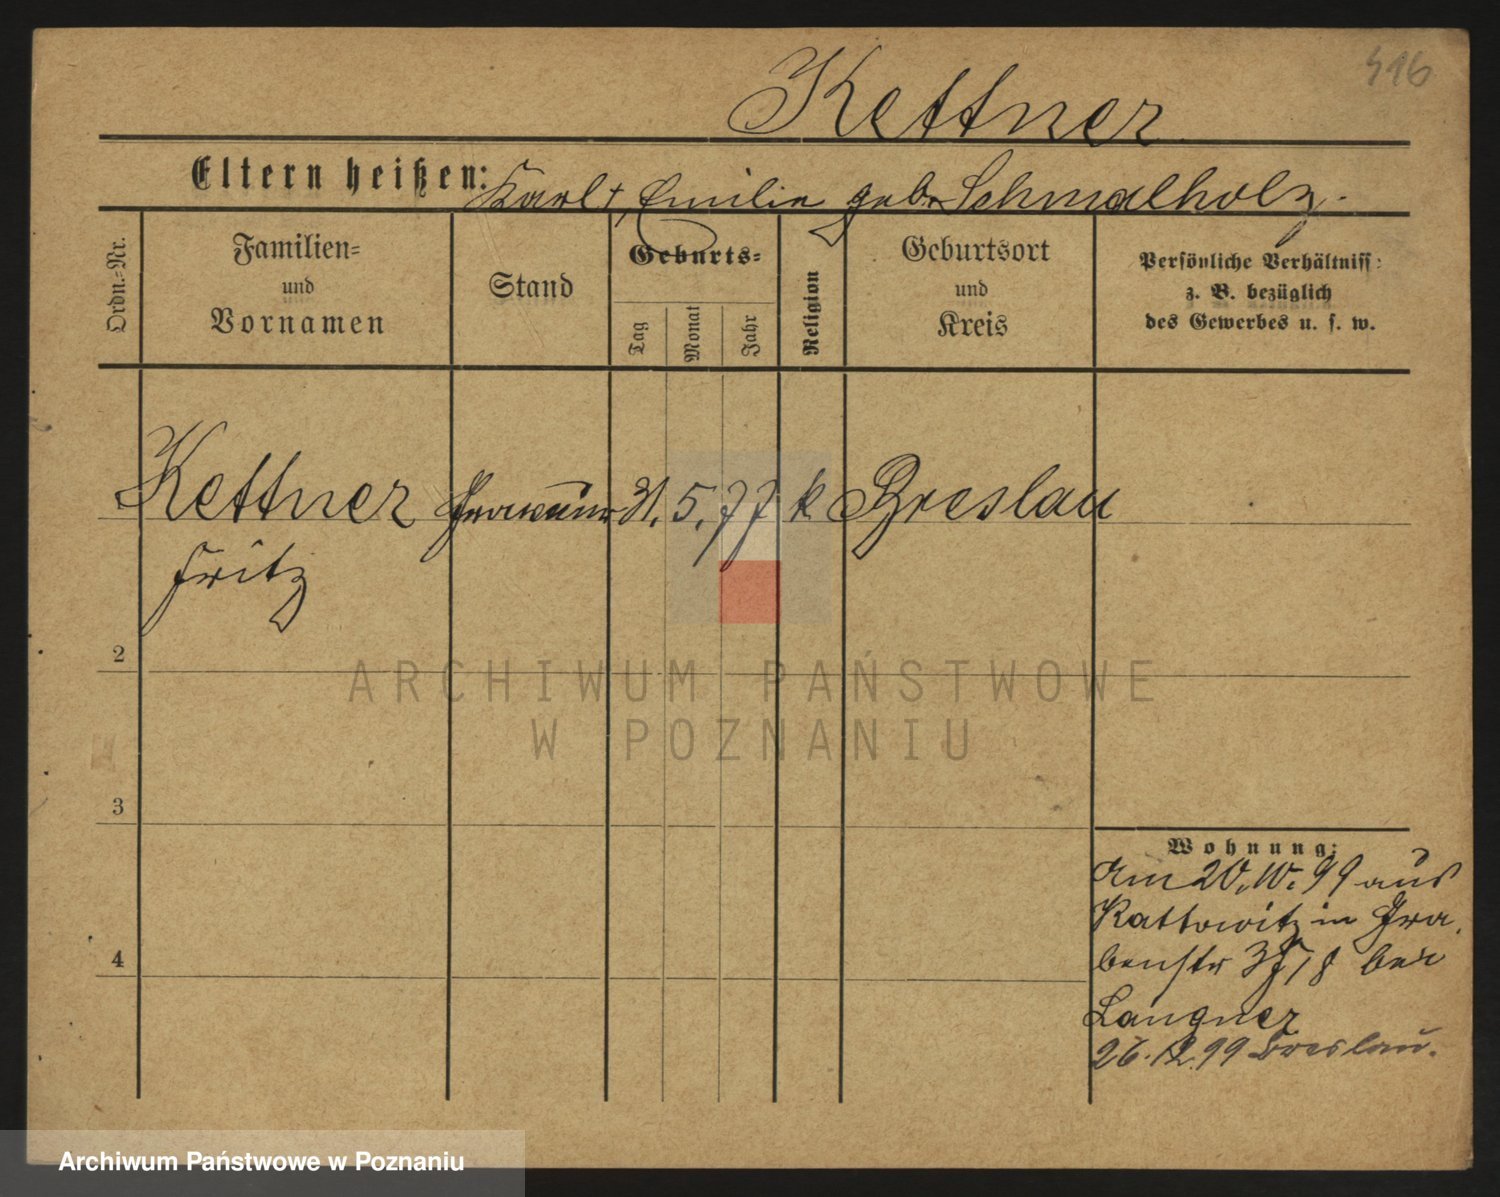 516
Kettner
Eltern heißen: Karl †, Emilie geb. Schmalholz.
Ordn.-Nr.
Familien-
und
Vornamen
Stand
Geburts-
Tag
Monat
Jahr
Religion
Geburtsort
und
Kreis
Persönliche Verhältniss:
z. B. bezüglich
des Gewerbes u. s. w.
Kettner 31. 5. 77 k Breslau
Fritz
2
3
4
Wohnung:
Am 20. 10. 99 aus
Kattowitz in Gra-
benstr bei
Langner
26. 12. 99 Breslau.
ARCHIWUM PAŃSTWOWE
W POZNANIU
Archiwum Państwowe w Poznaniu